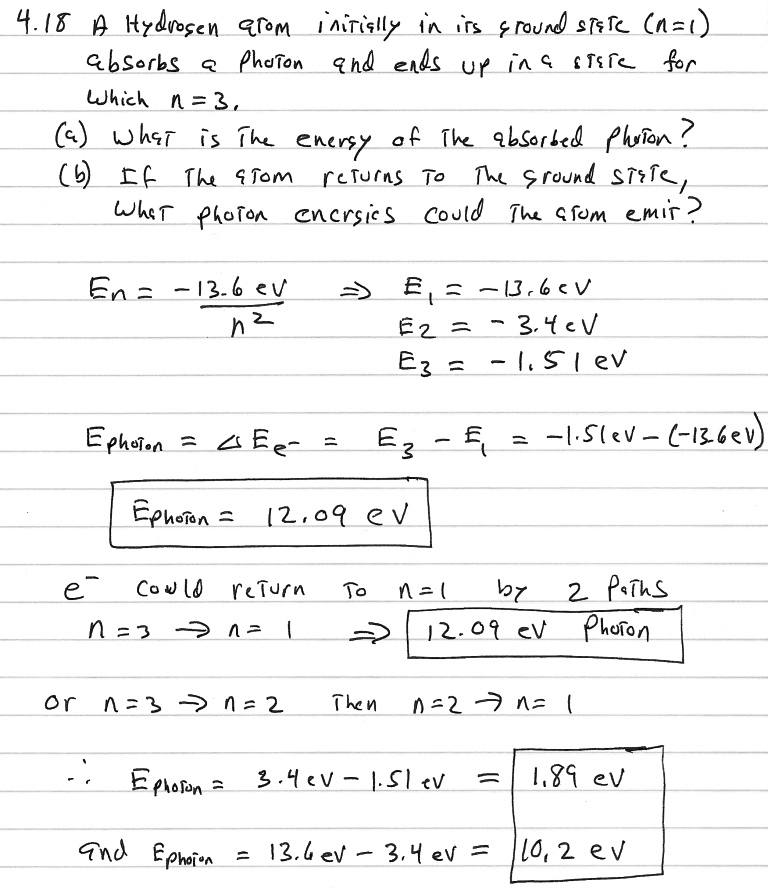 4.18 A Hydrogen atom initially in its ground state (n=1)
absorbs a photon and ends up in a state for
which n = 3.
(a) What is the energy of the absorbed photon?
(b) If the atom returns to the ground state,
what photon energies could the atom emit?
En = -13.6 eV / n² ⇒ E₁ = -13.6 eV
E₂ = -3.4 eV
E₃ = -1.51 eV
Ephoton = ΔEe- = E₃ - E₁ = -1.51eV - (-13.6eV)
Ephoton = 12.09 eV
e⁻ could return to n=1 by 2 paths
n=3 → n=1 ⇒ 12.09 eV photon
or n=3 → n=2 Then n=2 → n=1
∴ Ephoton = 3.4 eV - 1.51 eV = 1.89 eV
and Ephoton = 13.6 eV - 3.4 eV = 10.2 eV